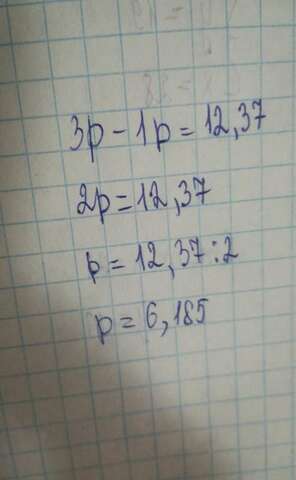 3p - 1p = 12,37
2p = 12,37
p = 12,37 : 2
p = 6,185